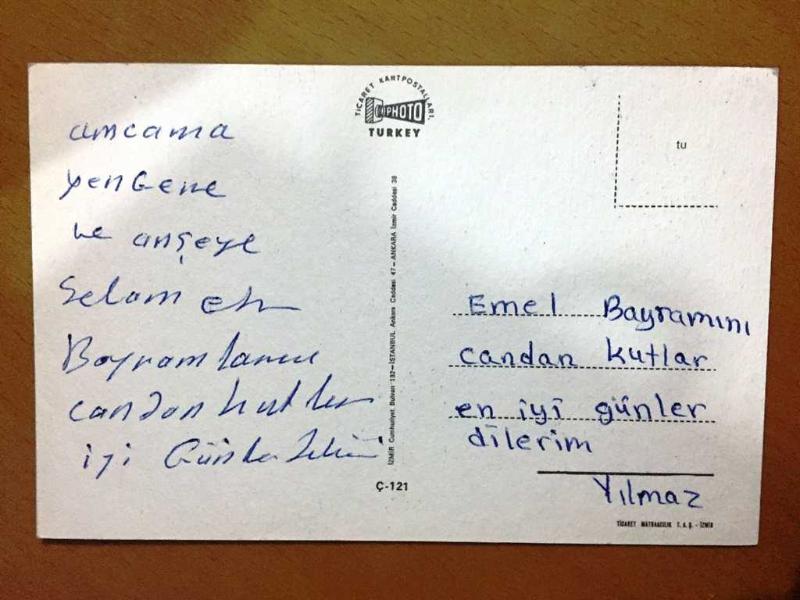 TİCARET KARTPOSTALLARI,
PHOTO
TURKEY
tu
amcama
yengene
ve anşeye
Selam et
Bayramlarını
candan kutlar
iyi Günler dilerim
İZMİR Cumhuriyet Bulvarı 132 – İSTANBUL Ankara Caddesi 47 – ANKARA İzmir Caddesi 38
Emel Bayramını
candan kutlar
en iyi günler
dilerim
Yılmaz
Ç-121
TİCARET MATBAACILIK T.A.Ş. - İZMİR